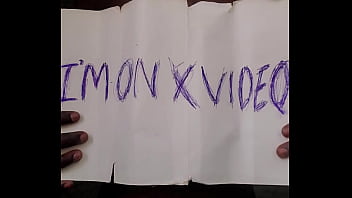 I'M ON X VIDEO